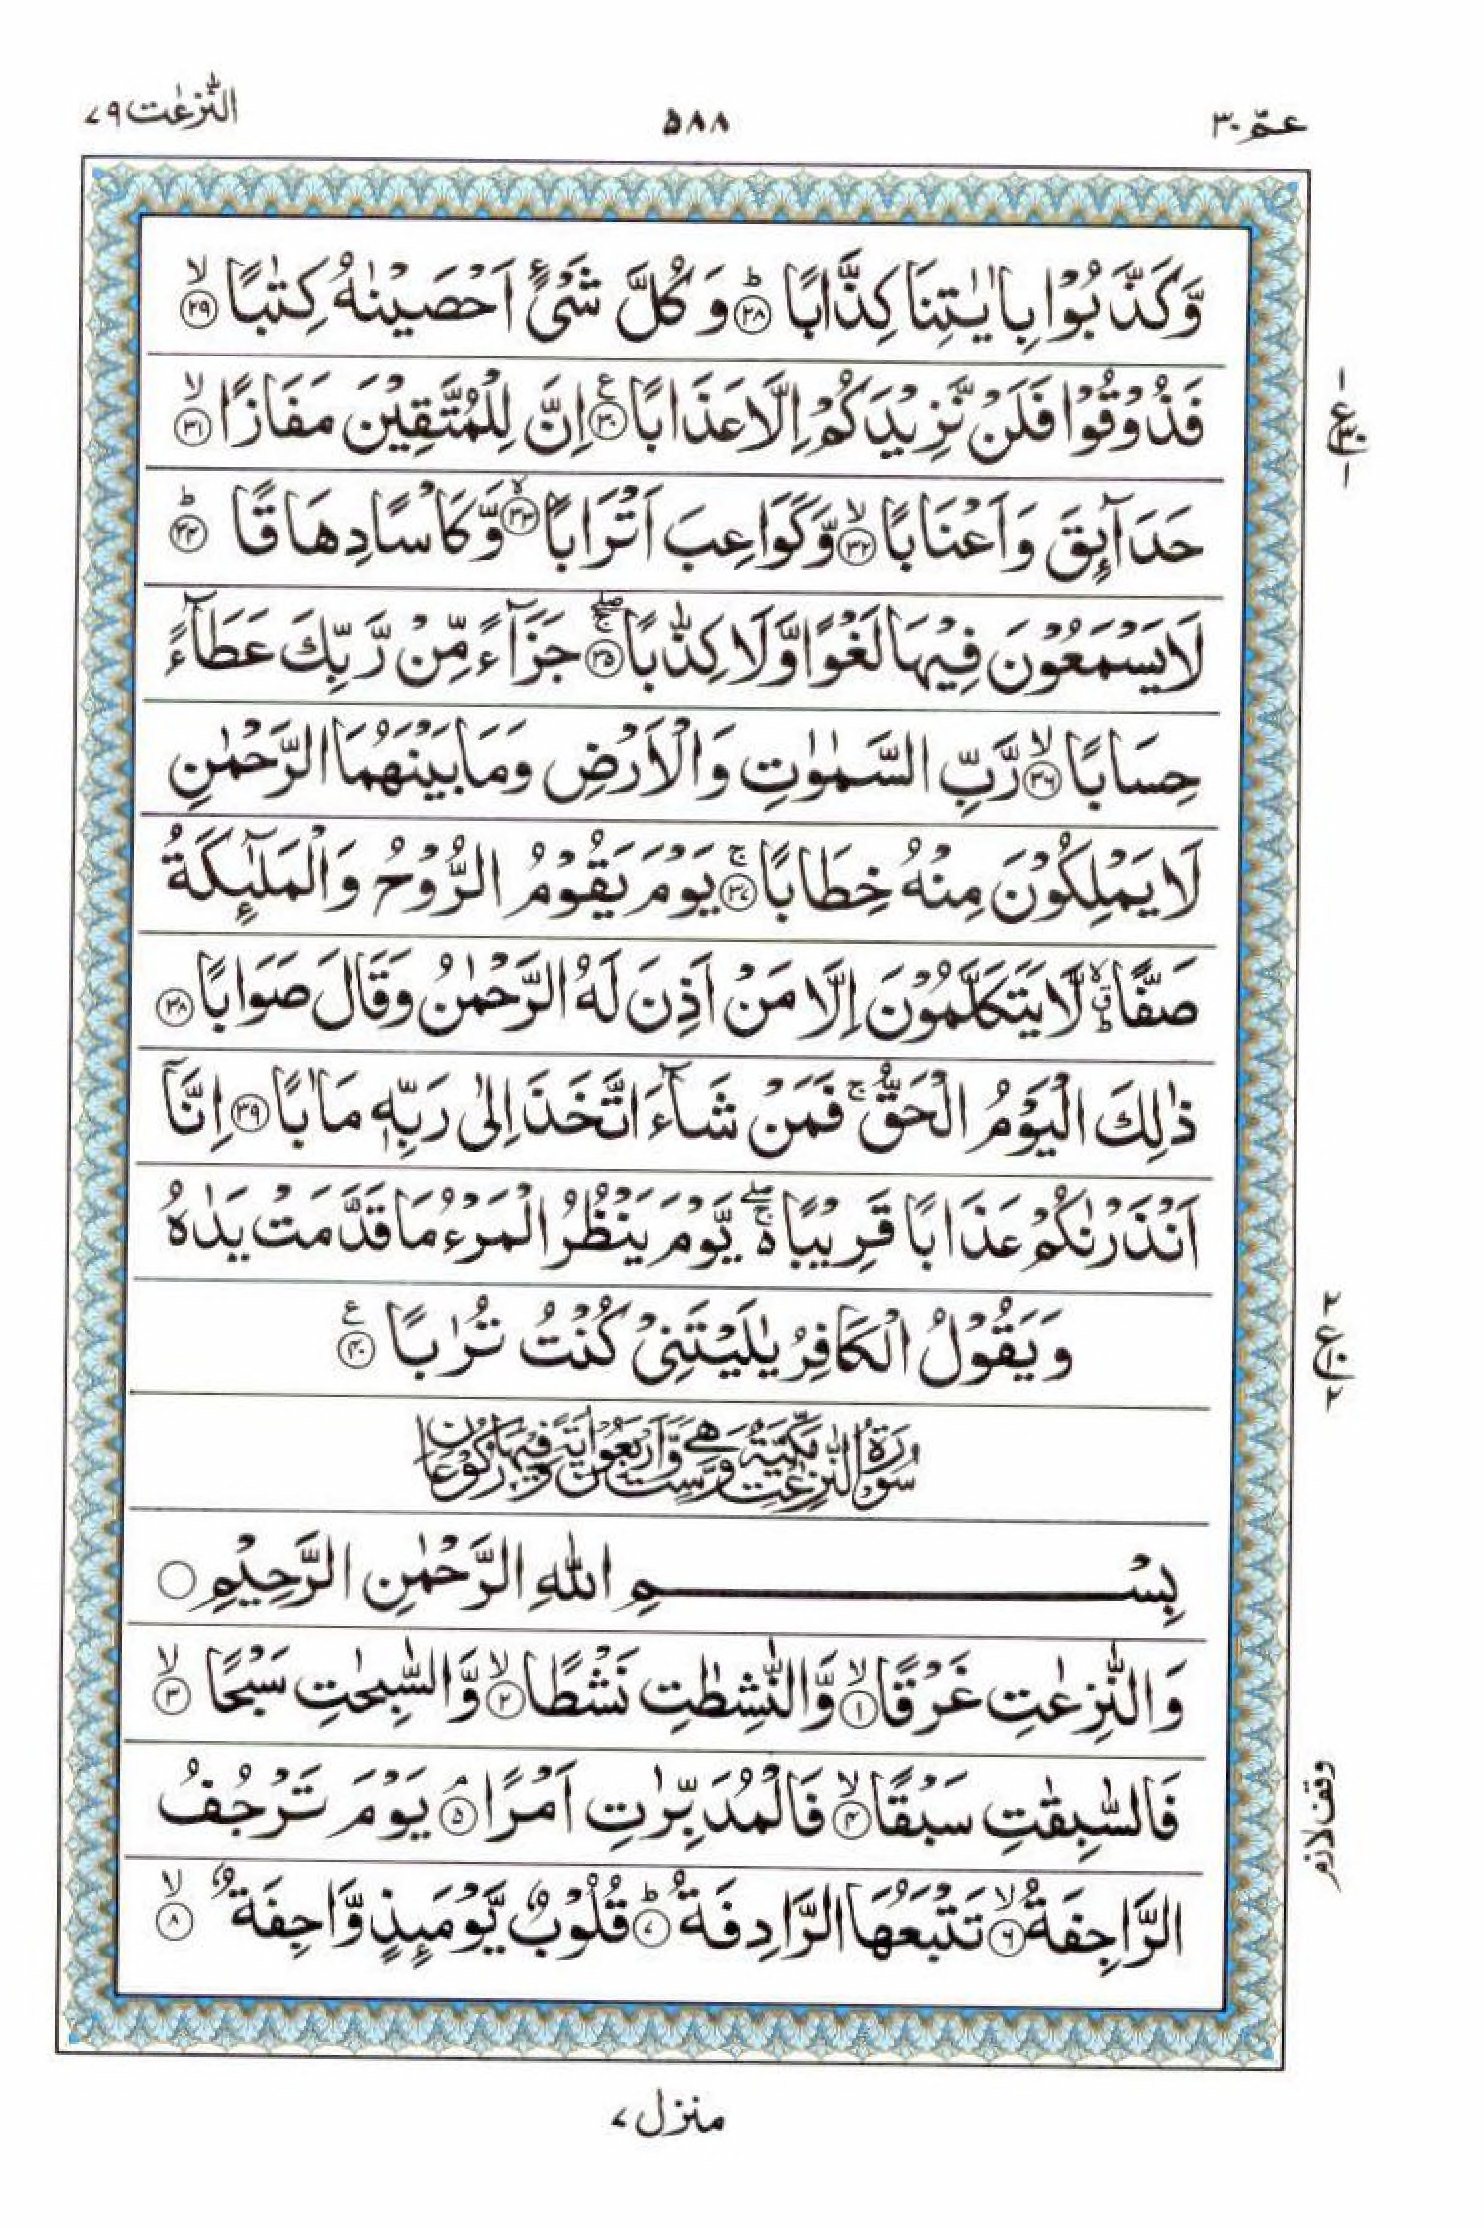 عمّ ٣٠
٥٨٨
النّٰزعٰت ٧٩
وَّكَذَّبُوْا بِاٰيٰتِنَا كِذَّابًا ؕ‏﴿۲۸﴾ وَكُلَّ شَىْءٍ اَحْصَيْنٰهُ كِتٰبًا ۙ‏﴿۲۹﴾
فَذُوْقُوْا فَلَنْ نَّزِيْدَكُمْ اِلَّا عَذَابًا ‏﴿۳۰﴾ ع اِنَّ لِلْمُتَّقِيْنَ مَفَازًا ۙ‏﴿۳۱﴾
حَدَآئِقَ وَاَعْنَابًا ۙ‏﴿۳۲﴾ وَّكَوَاعِبَ اَتْرَابًا ۙ‏﴿۳۳﴾ وَّكَاْسًا دِهَاقًا ؕ‏﴿۳۴﴾
لَا يَسْمَعُوْنَ فِيْهَا لَغْوًا وَّلَا كِذّٰبًا ۚۖ‏﴿۳۵﴾ جَزَآءً مِّنْ رَّبِّكَ عَطَآءً
حِسَابًا ۙ‏﴿۳۶﴾ رَّبِّ السَّمٰوٰتِ وَالْاَرْضِ وَمَا بَيْنَهُمَا الرَّحْمٰنِ
لَا يَمْلِكُوْنَ مِنْهُ خِطَابًا ۚ‏﴿۳۷﴾ يَوْمَ يَقُوْمُ الرُّوْحُ وَالْمَلٰٓئِكَةُ
صَفًّا ۙۗؕ لَّا يَتَكَلَّمُوْنَ اِلَّا مَنْ اَذِنَ لَهُ الرَّحْمٰنُ وَقَالَ صَوَابًا ‏﴿۳۸﴾
ذٰلِكَ الْيَوْمُ الْحَقُّ ۚ فَمَنْ شَآءَ اتَّخَذَ اِلٰى رَبِّهٖ مَاٰبًا ‏﴿۳۹﴾ اِنَّاۤ
اَنْذَرْنٰكُمْ عَذَابًا قَرِيْبًا ۚۖ۵ يَّوْمَ يَنْظُرُ الْمَرْءُ مَا قَدَّمَتْ يَدٰهُ
وَيَقُوْلُ الْكَافِرُ يٰلَيْتَنِىْ كُنْتُ تُرٰبًا ‏﴿۴۰﴾ ع
سُوْرَةُ النّٰزِعٰتِ مَكِّيَّةٌ وَّهِىَ سِتٌّ وَّاَرْبَعُوْنَ اٰيَةً وَّفِيْهَا رُكُوْعَانِ
بِسْمِ اللّٰهِ الرَّحْمٰنِ الرَّحِيْمِ ۝
وَالنّٰزِعٰتِ غَرْقًا ۙ‏﴿۱﴾ وَّالنّٰشِطٰتِ نَشْطًا ۙ‏﴿۲﴾ وَّالسّٰبِحٰتِ سَبْحًا ۙ‏﴿۳﴾
فَالسّٰبِقٰتِ سَبْقًا ۙ‏﴿۴﴾ فَالْمُدَبِّرٰتِ اَمْرًا ۘ‏﴿۵﴾ يَوْمَ تَرْجُفُ
الرَّاجِفَةُ ۙ‏﴿۶﴾ تَتْبَعُهَا الرَّادِفَةُ ؕ‏﴿۷﴾ قُلُوْبٌ يَّوْمَئِذٍ وَّاجِفَةٌ ۙ‏﴿۸﴾
١ ع ٣٠ ١
٢ ع ١٠ ٢
وقف لازم
منزل ٧